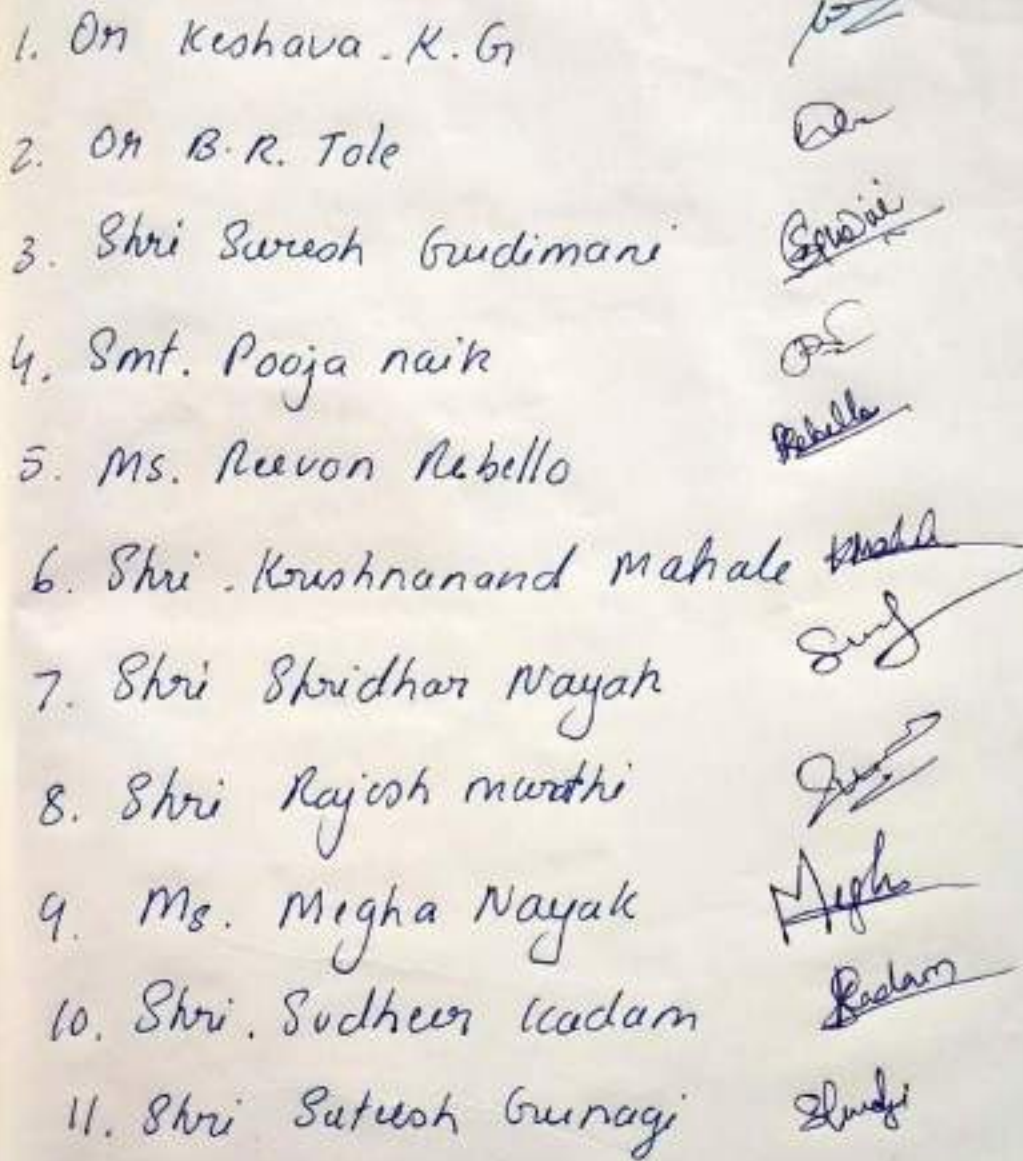 1. Dr Keshava. K. G
2. Dr B. R. Tole
3. Shri Suresh Gudimani
4. Smt. Pooja naik
5. Ms. Reevon Rebello Rebello
6. Shri. Krushnanand Mahale
7. Shri Shridhar Nayak
8. Shri Rajesh murthi
9. Ms. Megha Nayak Megha
10. Shri. Sudheer Kadam Kadam
11. Shri Sateesh Gunagi